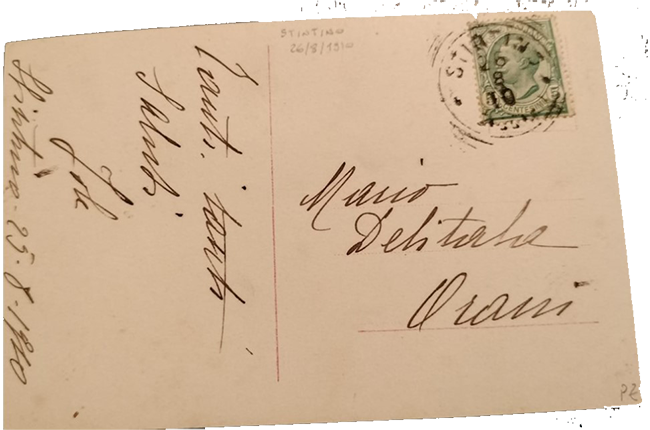 STINTINO
26/8/1910
Tanti, tanti
Saluti
Stintino-25-8-1910
STINTINO
Mario
Delitala
Orani
PZ